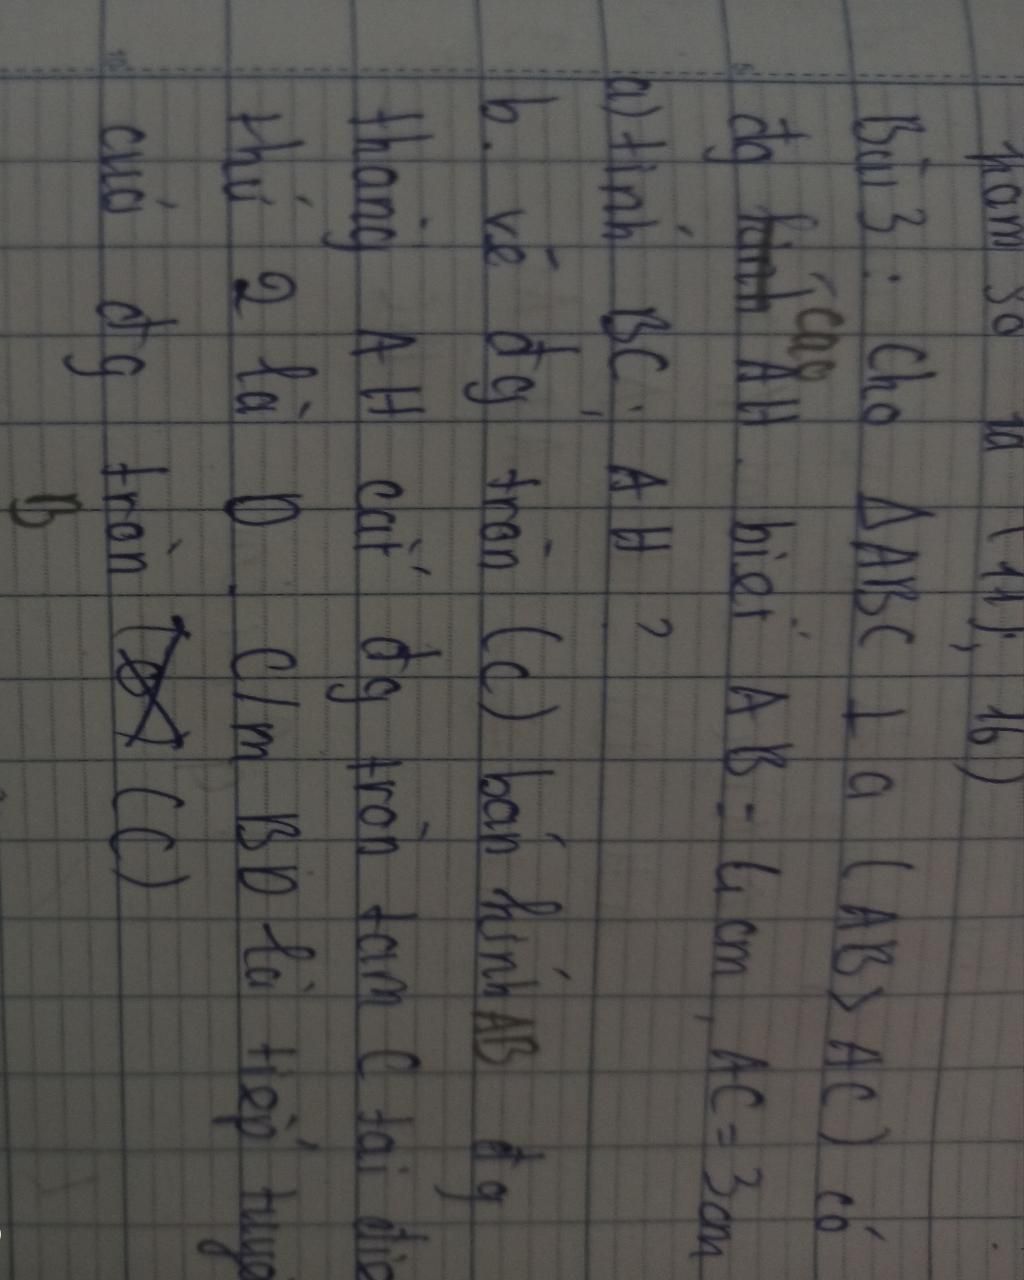 hàm số
Bài 3 : Cho ΔABC ⊥ a (AB > AC) có
cao
đg AH . biết AB = 4 cm, AC = 3cm
a) tính BC ; AH ?
b. vẽ đg tròn (C) bán kính AB đg
thẳng AH cắt đg tròn tam C tại
thứ 2 là D . C/m BD là tiếp
của đg tròn (C)
B